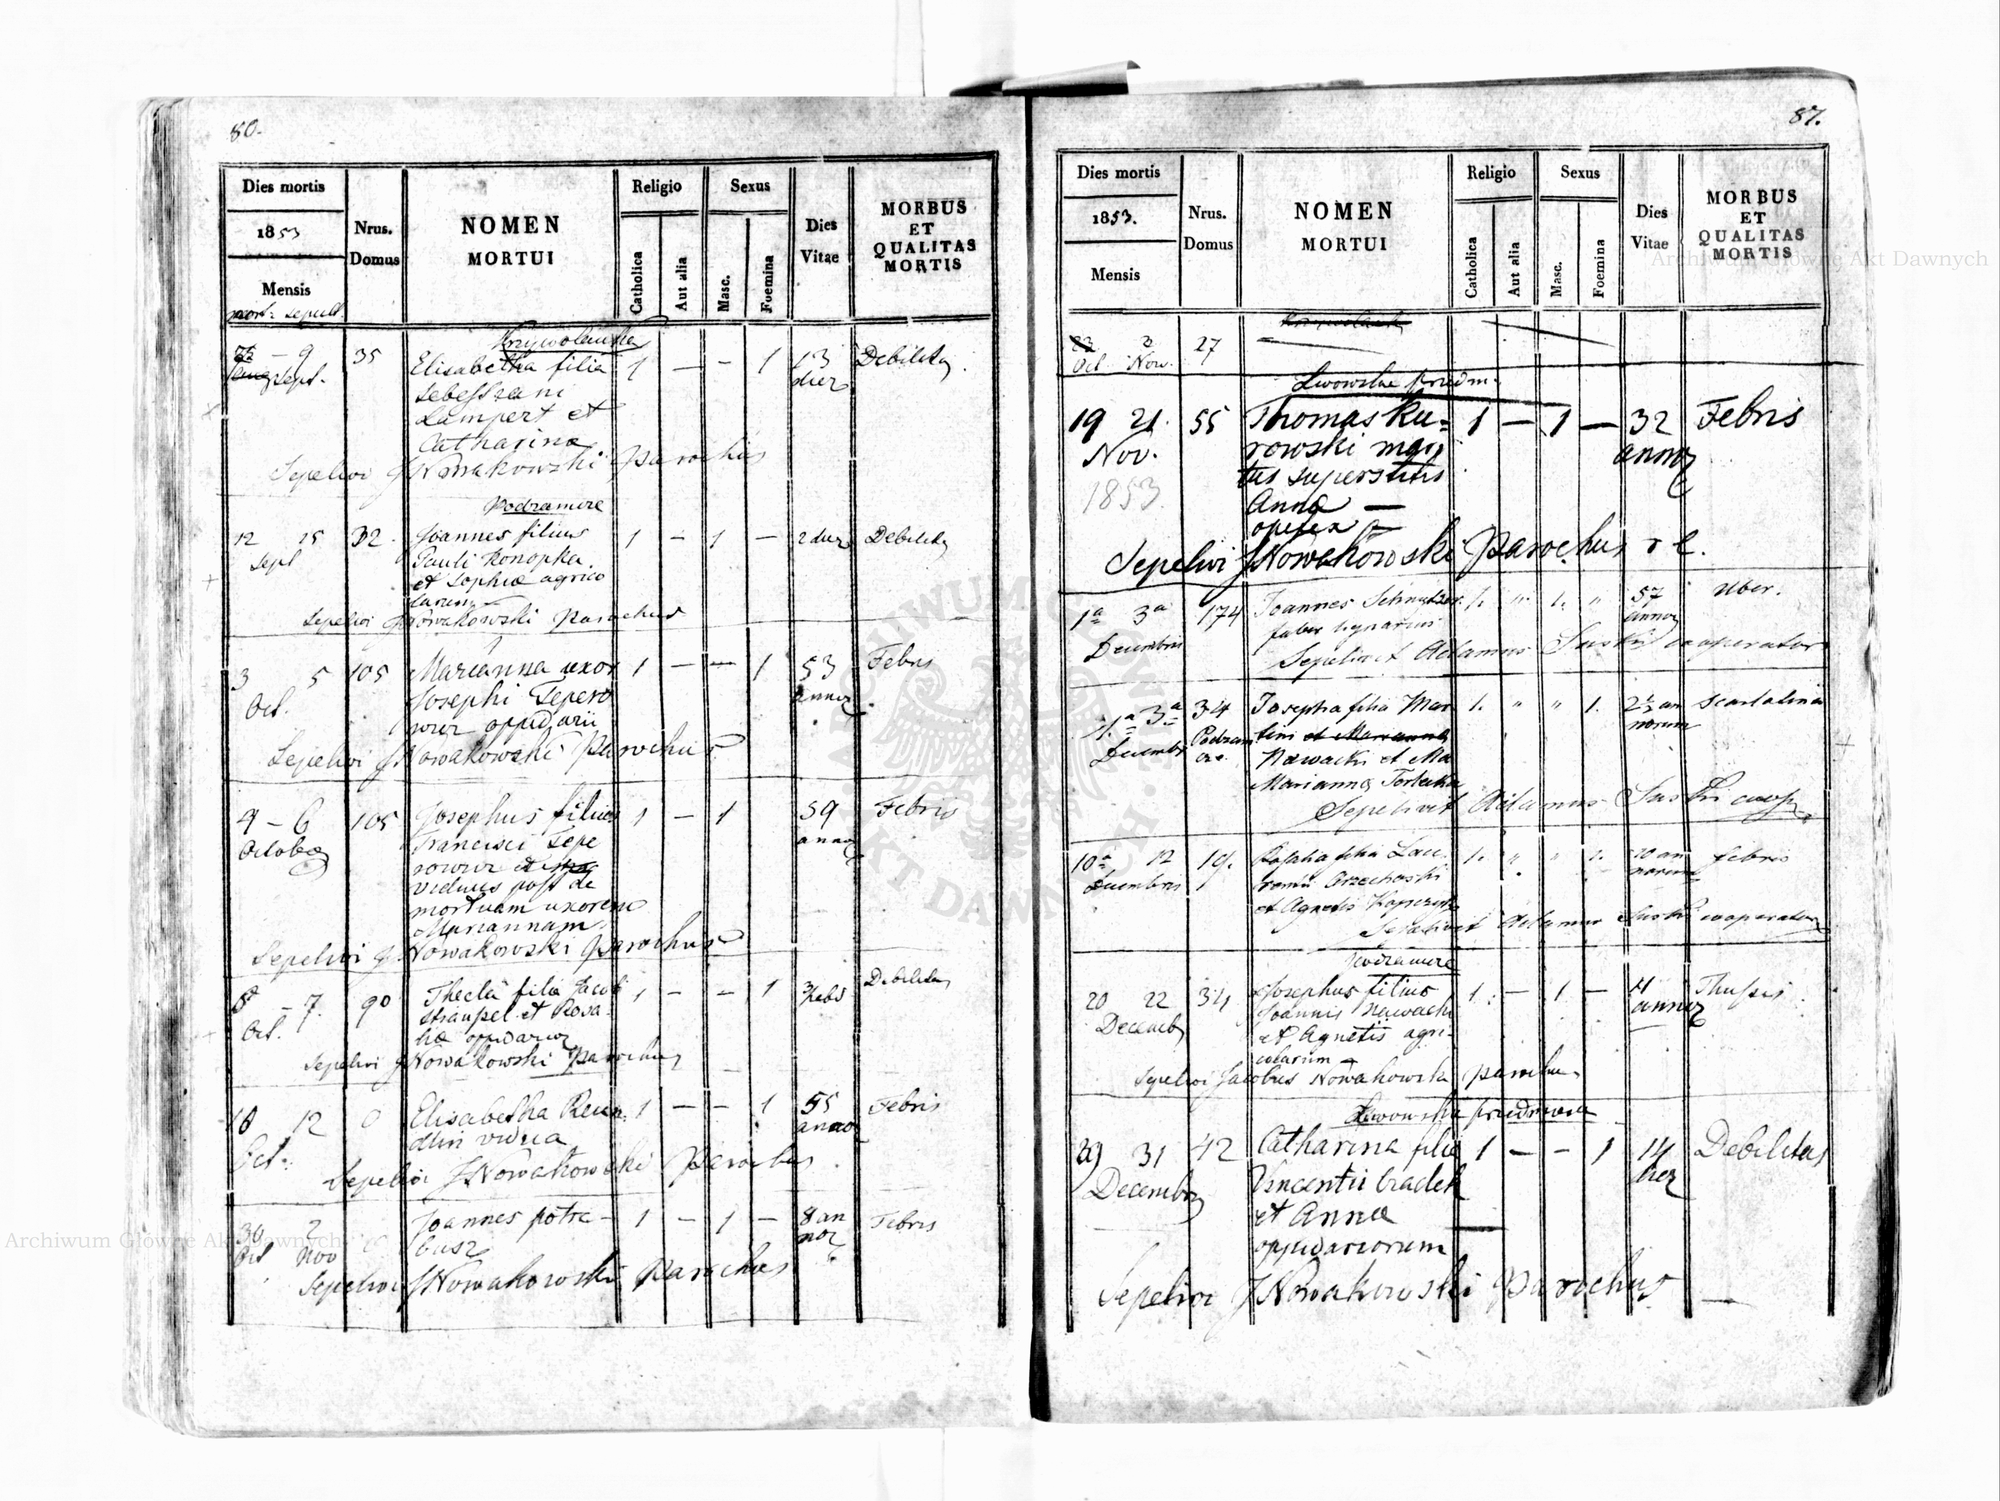 80.
Dies mortis
1853
Mensis
mort: sepult.
Nrus.
Domus
NOMEN
MORTUI
Religio
Catholica
Aut alia
Sexus
Masc.
Foemina
Dies
Vitae
MORBUS
ET
QUALITAS
MORTIS
9 35 Elisabetha filia 1 — — 1 13 Debilitas
Sept. dier
Lampert et
Catharina
Sepelivi J Nowakowski parochus
Podzamcze
12 15 32 Joannes filius 1 — 1 — 2 dier Debilitas
Sept Pauli Konopka
et Sophiæ agrico
larum
Sepelivi J Nowakowski Parochus
3 5 105 Marianna uxor 1 — — 1 53 Febris
Oct. Josephi Tepero
annor
wicz oppidarii
Sepelivi J Nowakowski Parochus
4 – 6 105 Josephus filius 1 — 1 59 Febris
Octobr Francisci Tepe
annor
rowicz
viduus post de
mortuam uxorem
Mariannam
Sepelivi J Nowakowski parochus
– 7. 90 Thecla filia Jacob 1 — — 1 Debilitas
Oct. Straupel et Rosa
liæ oppidarior
Sepelivi J Nowakowski parochus
10 12 0 Elisabetha 1 — — 1 55 Febris
Oct. vidua
annor
Sepelivi J Nowakowski Parochus
30 2 Joannes potra 1 — 1 — 8 an Febris
Oct Nov busz
nor
Sepelivi J Nowakowski parochus
87.
Dies mortis
1853.
Mensis
Nrus.
Domus
NOMEN
MORTUI
Religio
Catholica
Aut alia
Sexus
Masc.
Foemina
Dies
Vitae
MORBUS
ET
QUALITAS
MORTIS
23 2 27
Oct Nov.
Lwowskie przedm.
19 21. 55 Thomas Ku= 1 — 1 — 32 Febris
Nov. rowski mari annor
tus superstitis
1853. Anna —
opifex
Sepelivi J Nowakowski Parochus r l.
1a 3a 174 Joannes Schnatzer 1. " 1. " 57 Ulcer.
Decembris faber lignarius annor
Sepelivit Adamus Suski cooperator
1a 3a 34 Josepha filia Mar 1. " " 1. 2½ an Scarlatina
Decembr Podzam tini et Marianna norum
cze. Nawacki et Ma
Marianna
Sepelivit Adamus Suski coop
10a 12 19. Rosalia filia Lau 1. " " 1. 20 an febris
Decembris rentii Orzechoski norum
et Agnetis
Sepelivit Adamus Suski cooperator
Podzamcze
20 22 34 Josephus filius 1. — 1 — 4 Thussis
Decemb Joannis Nawacki annor
et Agnetis agri-
colarum
Sepelivi Jacobus Nowakowski parochus
Lwowskie przedmiescie
29 31 42 Catharina filia 1 — — 1 14 Debilitas
Decembr Vincentii Cradek
et Annæ
oppidariorum
Sepelivi J Nowakowski Parochus
Archiwum Główne Akt Dawnych
Archiwum Główne Akt Dawnych
ARCHIWUM GŁÓWNE
AKT DAWNYCH